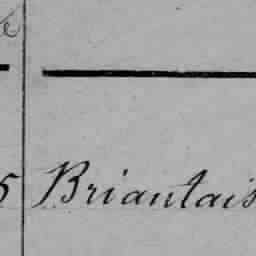 5 Briantais